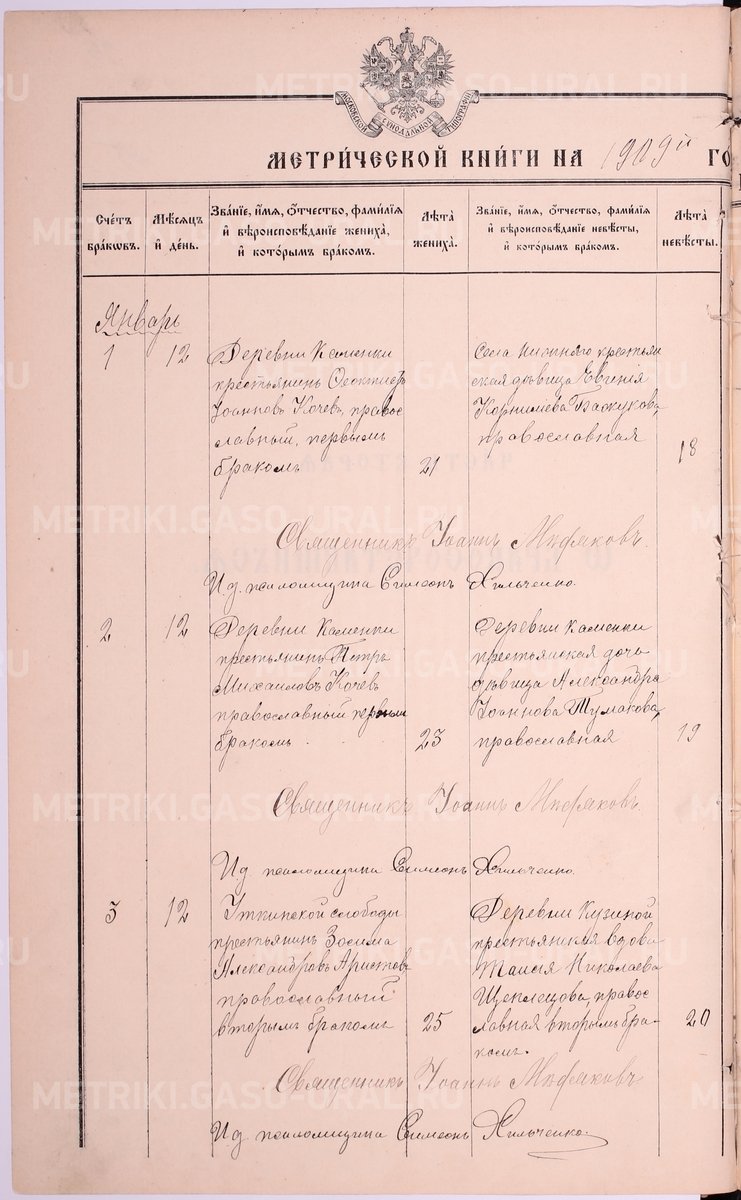 МОСКОВСКОЙ СѴНОДАЛЬНОЙ ТИПОГРАФІИ
МЕТРИ́ЧЕСКОЙ КНИ́ГИ НА 1909й ГО
Сче́тъ бра́ковъ.
Мѣ́сяцъ и҆ де́нь.
Зва́нїе, и҆́мѧ, ѻ҆́тчество, фами́лїѧ
и҆ вѣроисповѣ́данїе жениха̀,
и҆ кото́рымъ бра́комъ.
Лѣ́та женихà.
Зва́нїе, и҆́мѧ, ѻ҆́тчество, фами́лїѧ
и҆ вѣроисповѣ́данїе невѣ́сты,
и҆ кото́рымъ бра́комъ.
Лѣ́та невѣ́сты.
Январь
1
12
Деревни Каменки
крестьянинъ Ѳеоктистъ
Іоанновъ Кочевъ, правос
лавный, первымъ
бракомъ
21
Села Нижняго крестьян
ская дѣвица Евгенія
Корнилиева
православная
18
Священникъ Іоаннъ
И.д. псаломщика Симеонъ Хильченко.
2
12
Деревни Каменки
крестьянинъ Петръ
Михаиловъ Кочевъ
православный первым
бракомъ
23
Деревни Каменки
крестьянская дочь
дѣвица Александра
Іоаннова Тумакова,
православная
19
Священникъ Іоаннъ
И.д. псаломщика Симеонъ Хильченко.
3
12
Уткинской слободы
крестьянинъ Зосима
Александровъ Аристовъ
православный
вторымъ бракомъ
25
Деревни Кузиной
крестьянская вдова
Таисія Николаева
Щеклецова, правос
лавная вторымъ бра-
комъ.
20
Священникъ Іоаннъ
И.д. псаломщика Симеонъ Хильченко.
METRIKI.GASO-URAL.RU